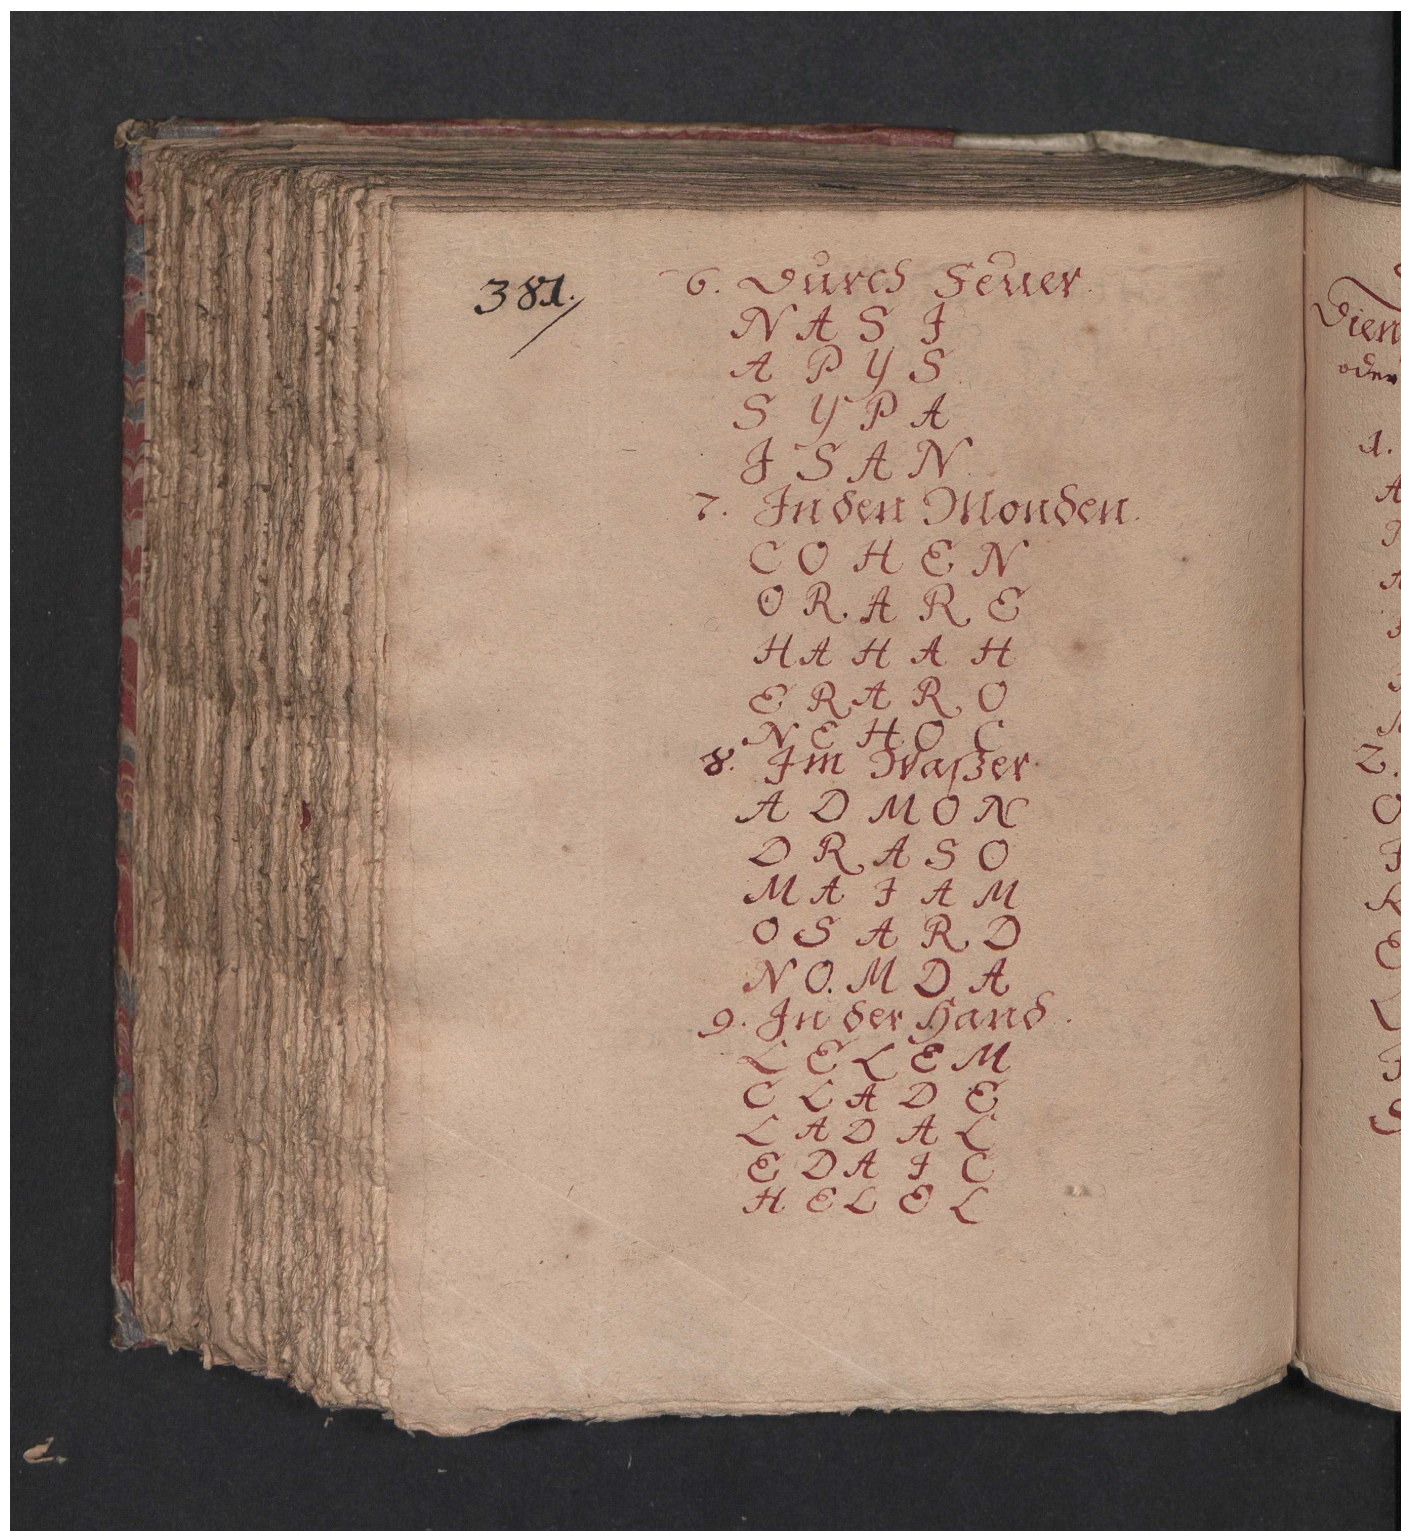 381.
6. Durch Feuer.
N A S I
A P Y S
S Y P A
I S A N
7. In den Monden.
C O H E N
O R A R E
H A H A H
E R A R O
N E H O C
8. Im Waßer.
A D M O N
D R A S O
M A I A M
O S A R D
N O. M D A
9. In der Hand.
L E L E M
C L A D E
L A D A L
E D A I C
H E L E L
Dien
oder
1.
2.